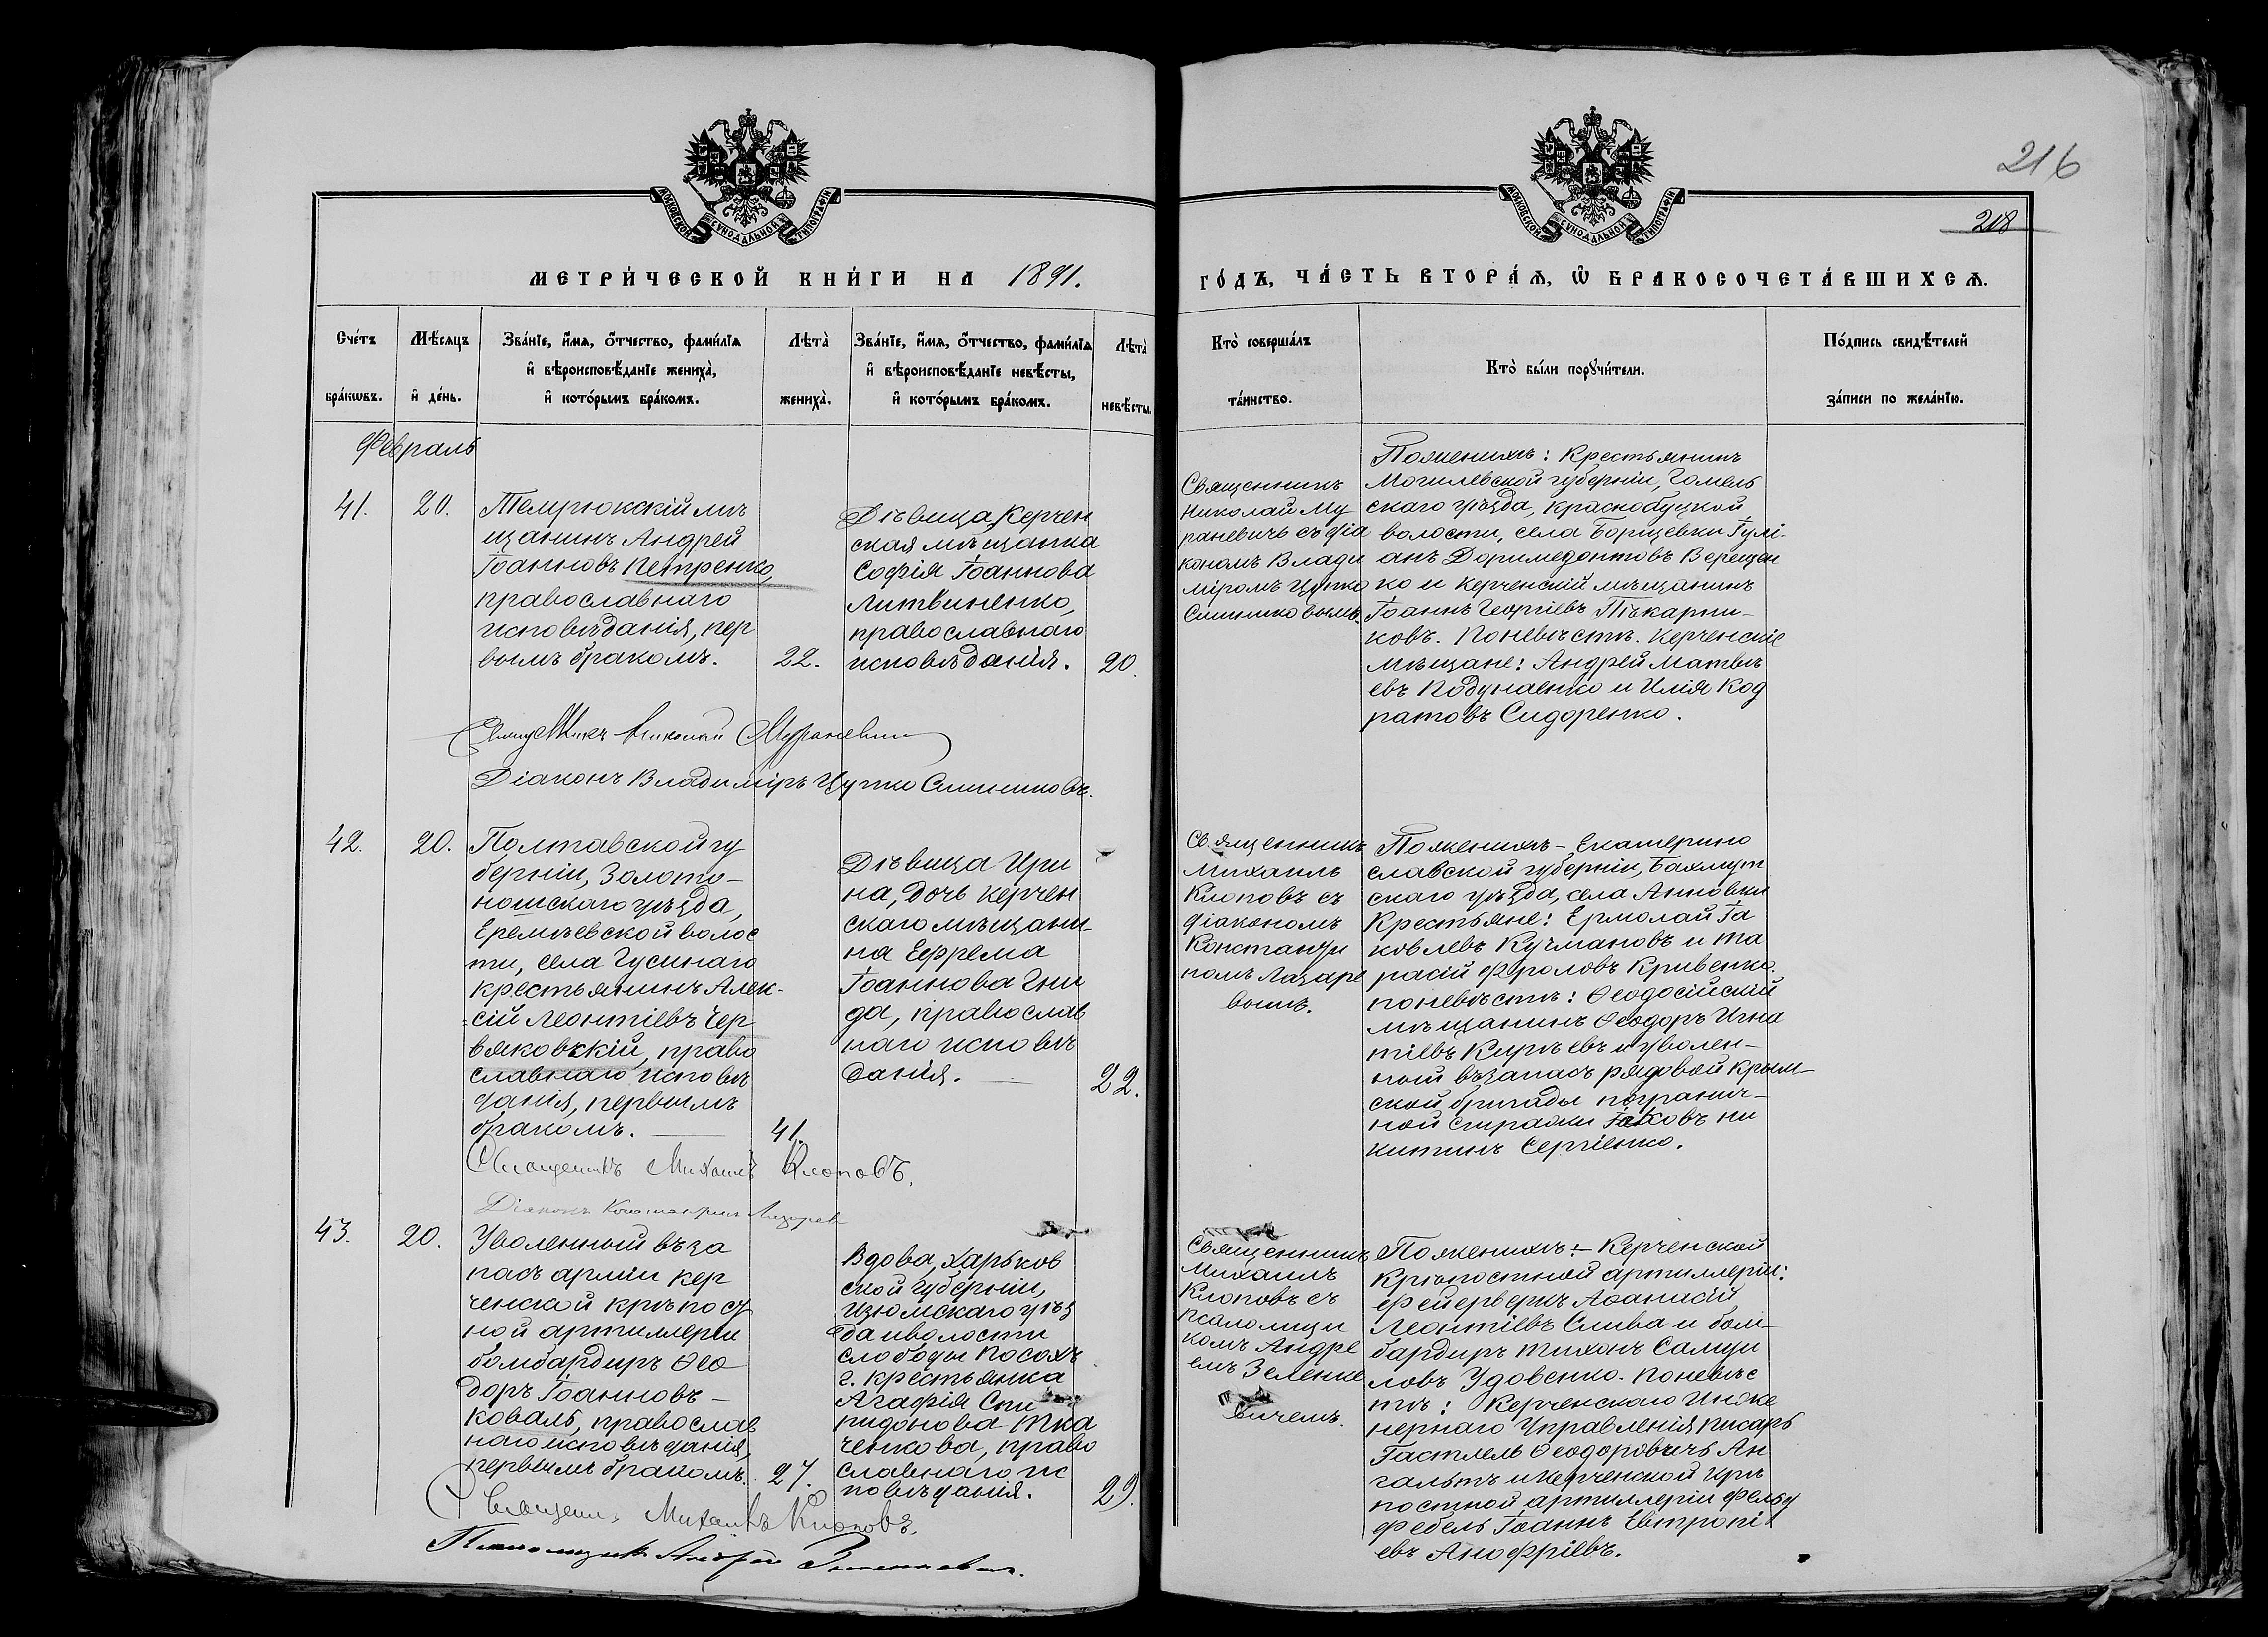 216
208
МОСКОВСКОЙ СѴНОДАЛЬНОЙ ТИПОГРАФІИ
МОСКОВСКОЙ СѴНОДАЛЬНОЙ ТИПОГРАФІИ
МЕТРИ́ЧЕСКОЙ КНИ́ГИ НА 1891.
ГО́ДЪ, ЧА́СТЬ ВТОРА́Ѧ, Ѽ БРАКОСОЧЕТА́ВШИХСѦ.
Сче́тъ
бра́кѡвъ.
Мѣ́сѧцъ
и҆ де́нь.
Зва́нїе, и҆́мѧ, ѻ҆́тчество, фами́лїѧ
и҆ вѣроисповѣ́данїе жениха̀,
и҆ кото́рымъ бра́комъ.
Лѣта̀
жениха̀.
Зва́нїе, и҆́мѧ, ѻ҆́тчество, фами́лїѧ
и҆ вѣроисповѣ́данїе невѣ́сты,
и҆ кото́рымъ бра́комъ.
Лѣта̀
невѣ́сты.
Кто̀ соверша́лъ
та́инство.
Кто̀ бы́ли порꙋчи́тели.
По́дпись свидѣ́телей
за́писи по жела́нїю.
Февраль
41.
20.
Темрюкскій мѣ
щанинъ Андрей
Іоанновъ Петренко,
православнаго
исповѣданія, пер
вымъ бракомъ.
22.
Дѣвица, Керчен
ская мѣщанка
Софія Іоаннова
Литвиненко,
православнаго
исповѣданія.
20.
Священникъ
Николай Му
раневичъ съ діа
кономъ Влади
міромъ Цутко
Слинковымъ.
По женихѣ: Крестьянинъ
Могилевской губерніи, Гомель
скаго уѣзда, Краснобудкой
волости, села Борщевки Іулі-
анъ Доримедонтовъ Верещен
ко и Керченскій мѣщанинъ
Іоаннъ Георгіевъ Пѣкарни-
ковъ. По невѣстѣ. Керченскіе
мѣщане: Андрей Матвѣ
евъ Подунаенко и Илія Код
ратовъ Сидоренко.
Священникъ Николай Мураневичъ
Діаконъ Владиміръ Цутко Слинковъ.
42.
20.
Полтавской гу
берніи, Золото-
ношскаго уѣзда,
Еремѣевской волос
ти, села Гусинаго
крестьянинъ Алек-
сій Леонтіевъ Чер
вяковскій, право
славнаго исповѣ
данія, первымъ
бракомъ.
41.
Дѣвица Ири
на, дочь керчен
скаго мѣщани-
на Ефрема
Іоаннова Гни
да, православ
наго исповѣ
данія.
22.
Священникъ
Михаилъ
Клоповъ съ
діакономъ
Константи
номъ Лазаре
вымъ.
По женихѣ- Екатерино
славской губерніи, Бахмут
скаго уѣзда, села Анновки
Крестьяне: Ермолай Іа
ковлевъ Кучмановъ и Та
расій Фроловъ Кривенко.
по невѣстѣ: Ѳеодосійскій
мѣщанинъ Ѳеодоръ Игна
тіевъ Кирѣевъ и уволен-
ный въ запасъ рядовой Крым-
ской бригады погранич-
ной стражи Іаковъ Ни
китинъ Сергіенко.
Священникъ Михаилъ Клоповъ.
Діаконъ Константинъ Лазаревъ
43.
20.
Уволенный въ за
пасъ арміи Кер
ченской крѣпост
ной артиллеріи
бомбардиръ Ѳео
доръ Іоанновъ-
Коваль, православ
наго исповѣданія,
первымъ бракомъ.
27.
Вдова, Харьков
ской губерніи,
Изюмскаго уѣз
да и волости
слободы Посохъ
г. крестьянка
Агафія Спи
ридонова Тка
ченкова, право
славнаго ис
повѣданія.
29.
Священникъ
Михаилъ
Клоповъ съ
псаломщи
комъ Андре
емъ Зеленке
вичемъ.
По женихѣ:- Керченской
Крѣпостной артиллеріи:
Фейерверкъ Аѳанасій
Леонтіевъ Слива и бом-
бардиръ Тихонъ Самуи
ловъ Удовенко. По невѣс
тѣ: Керченскаго Инже
нернаго Управленія писарь
Гастлель Ѳеодоровичъ Ан
гальтъ и Керченской крѣ
постной артиллеріи фельд
фебель Іоаннъ Евтропі
евъ Анофріевъ.
Священ. Михаилъ Клоповъ.
Псаломщикъ Андрей Зеленкевичъ.